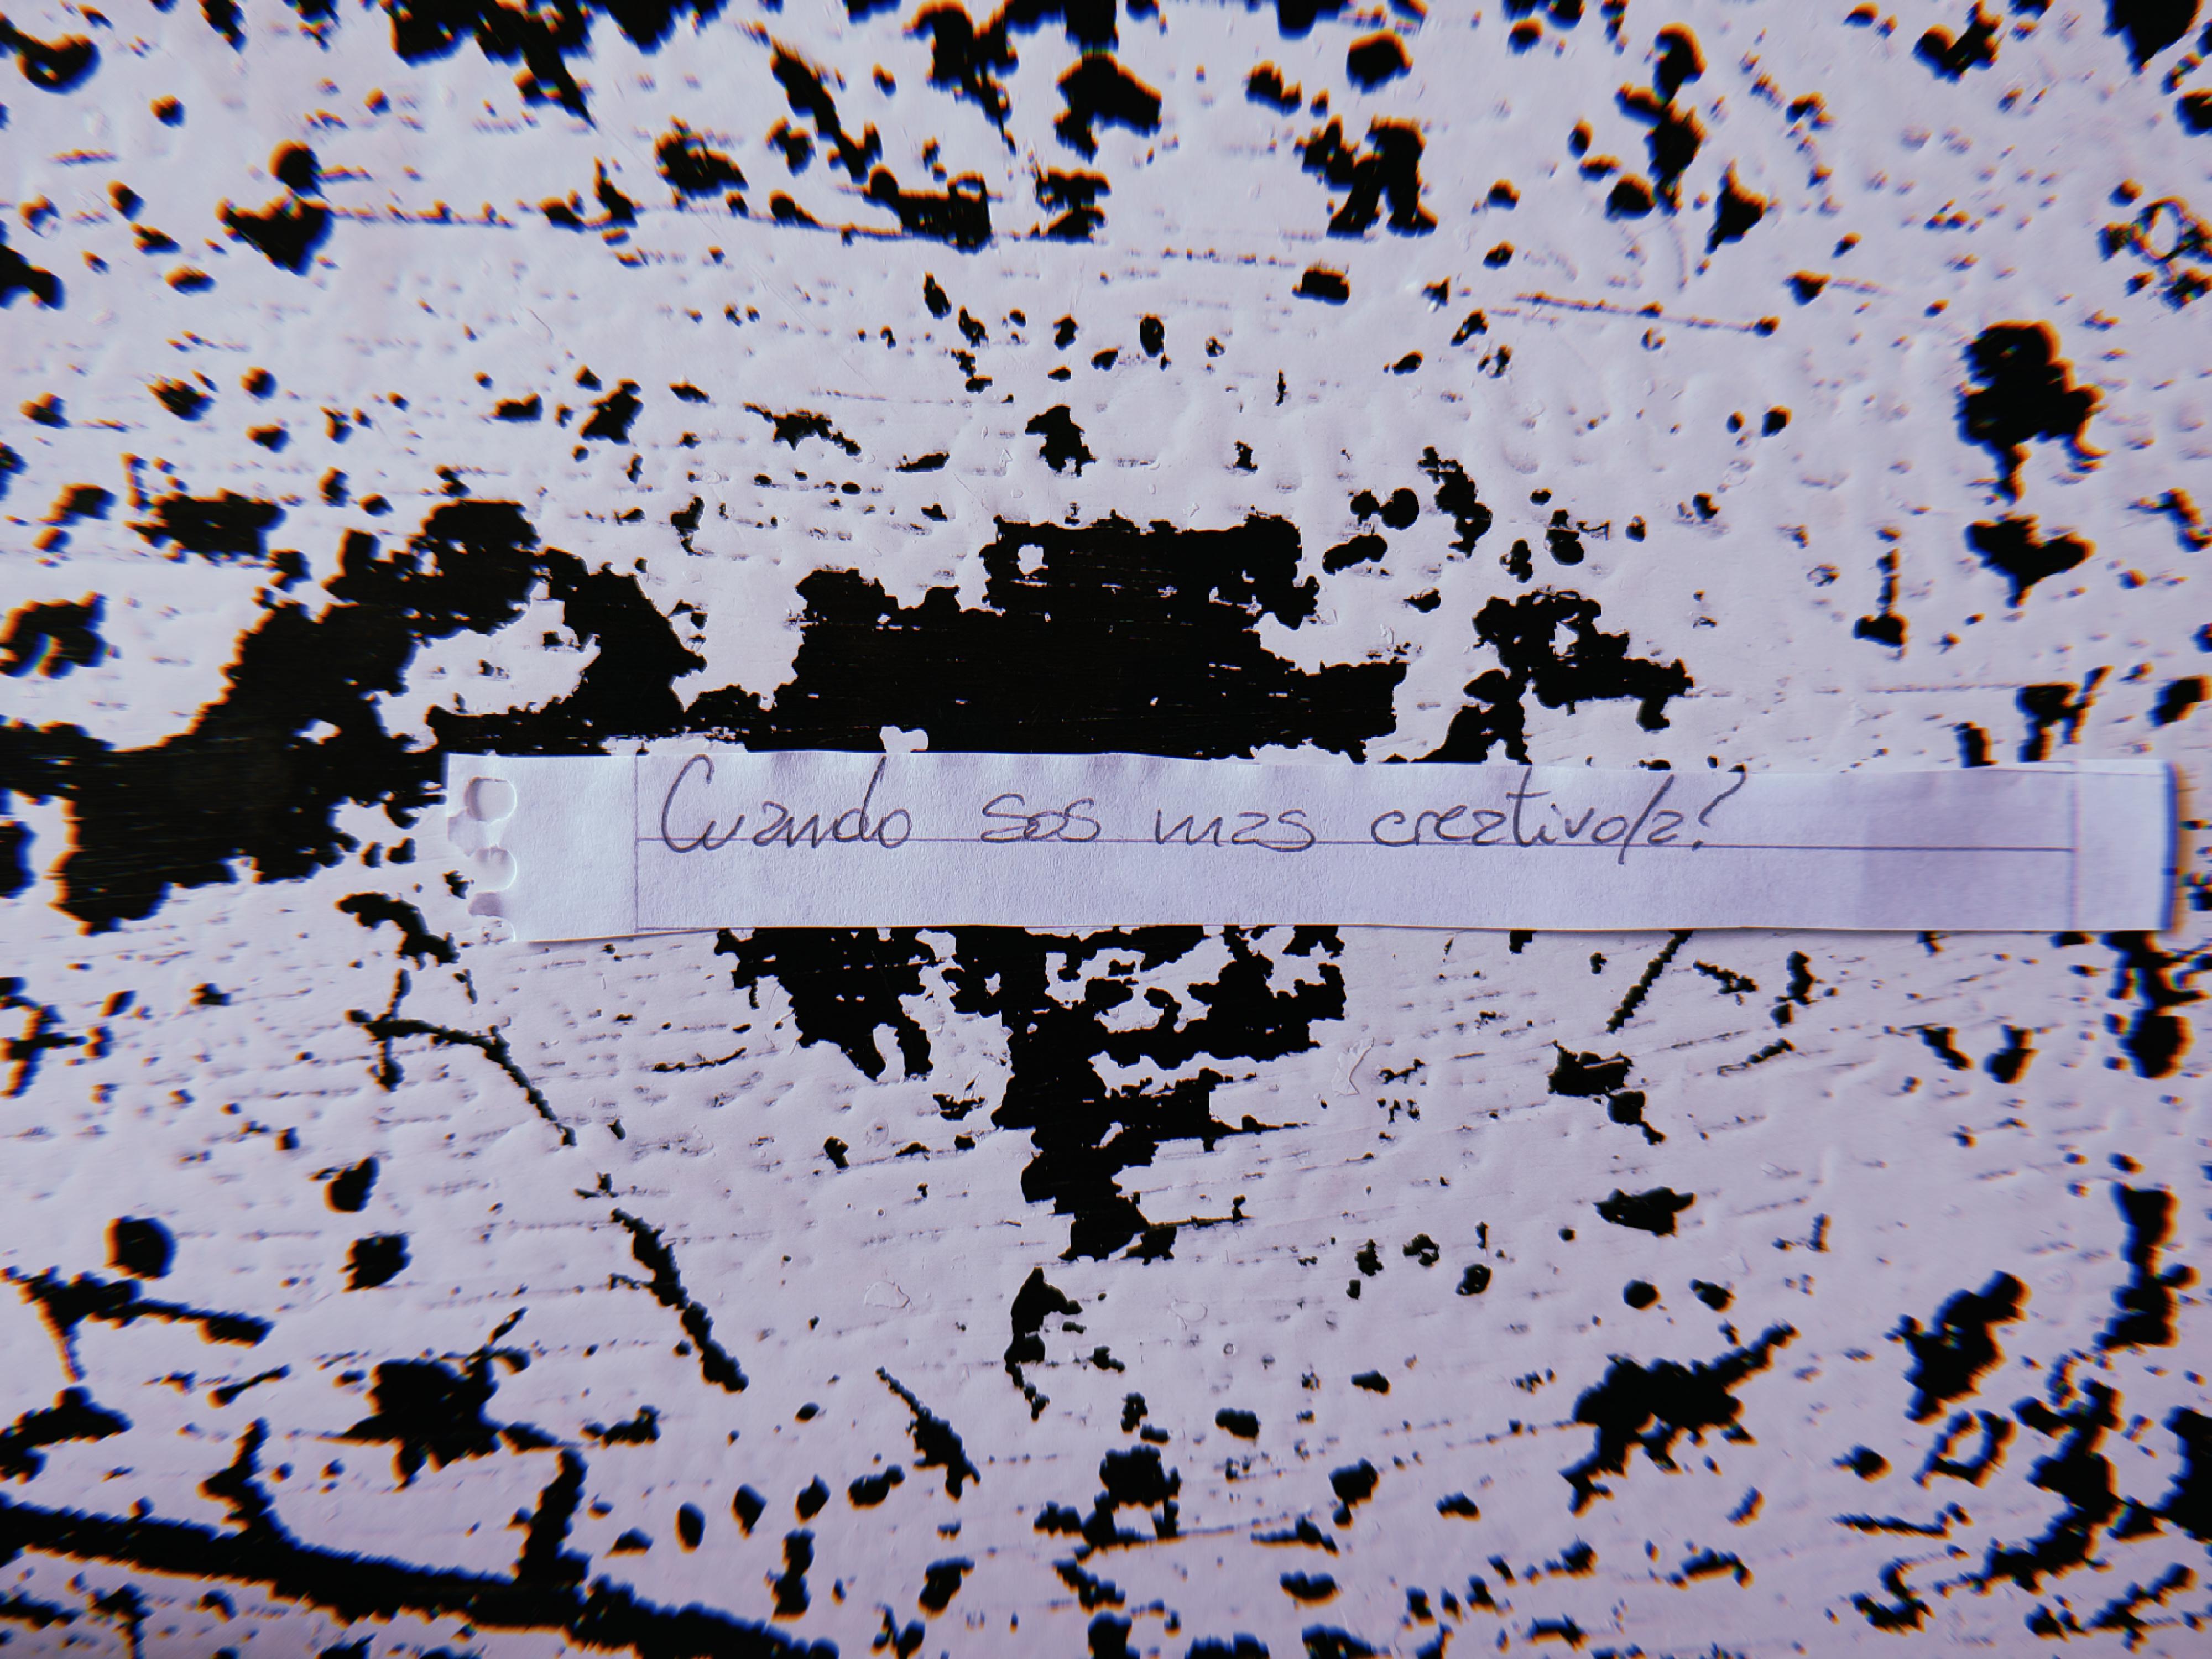 Cuando sos mas creativo/a?